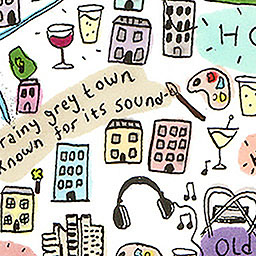 HO
rainy grey town
known for its sound-
Old